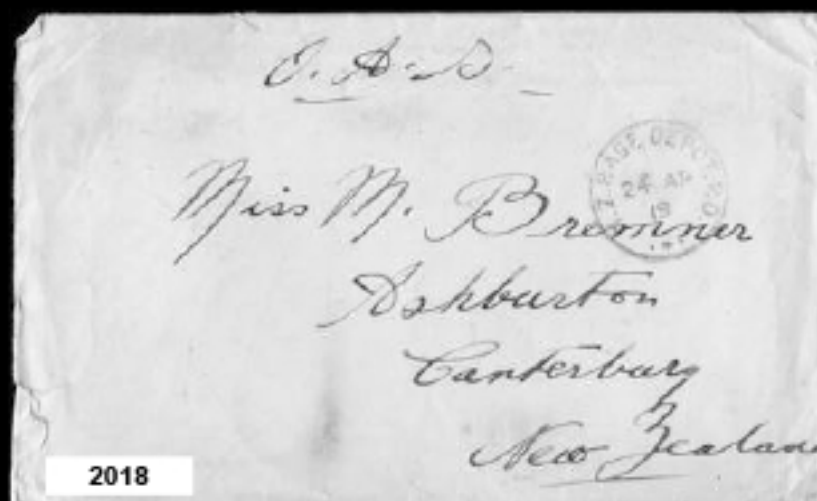 O. A. S.
N.Z. BASE DEPOT P.O
24 AP
18
Miss M. Bremner
Ashburton
Canterbury
New Zealan
2018